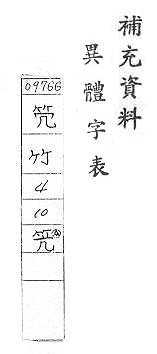 補充資料
異體字表
09766
竹
4
10